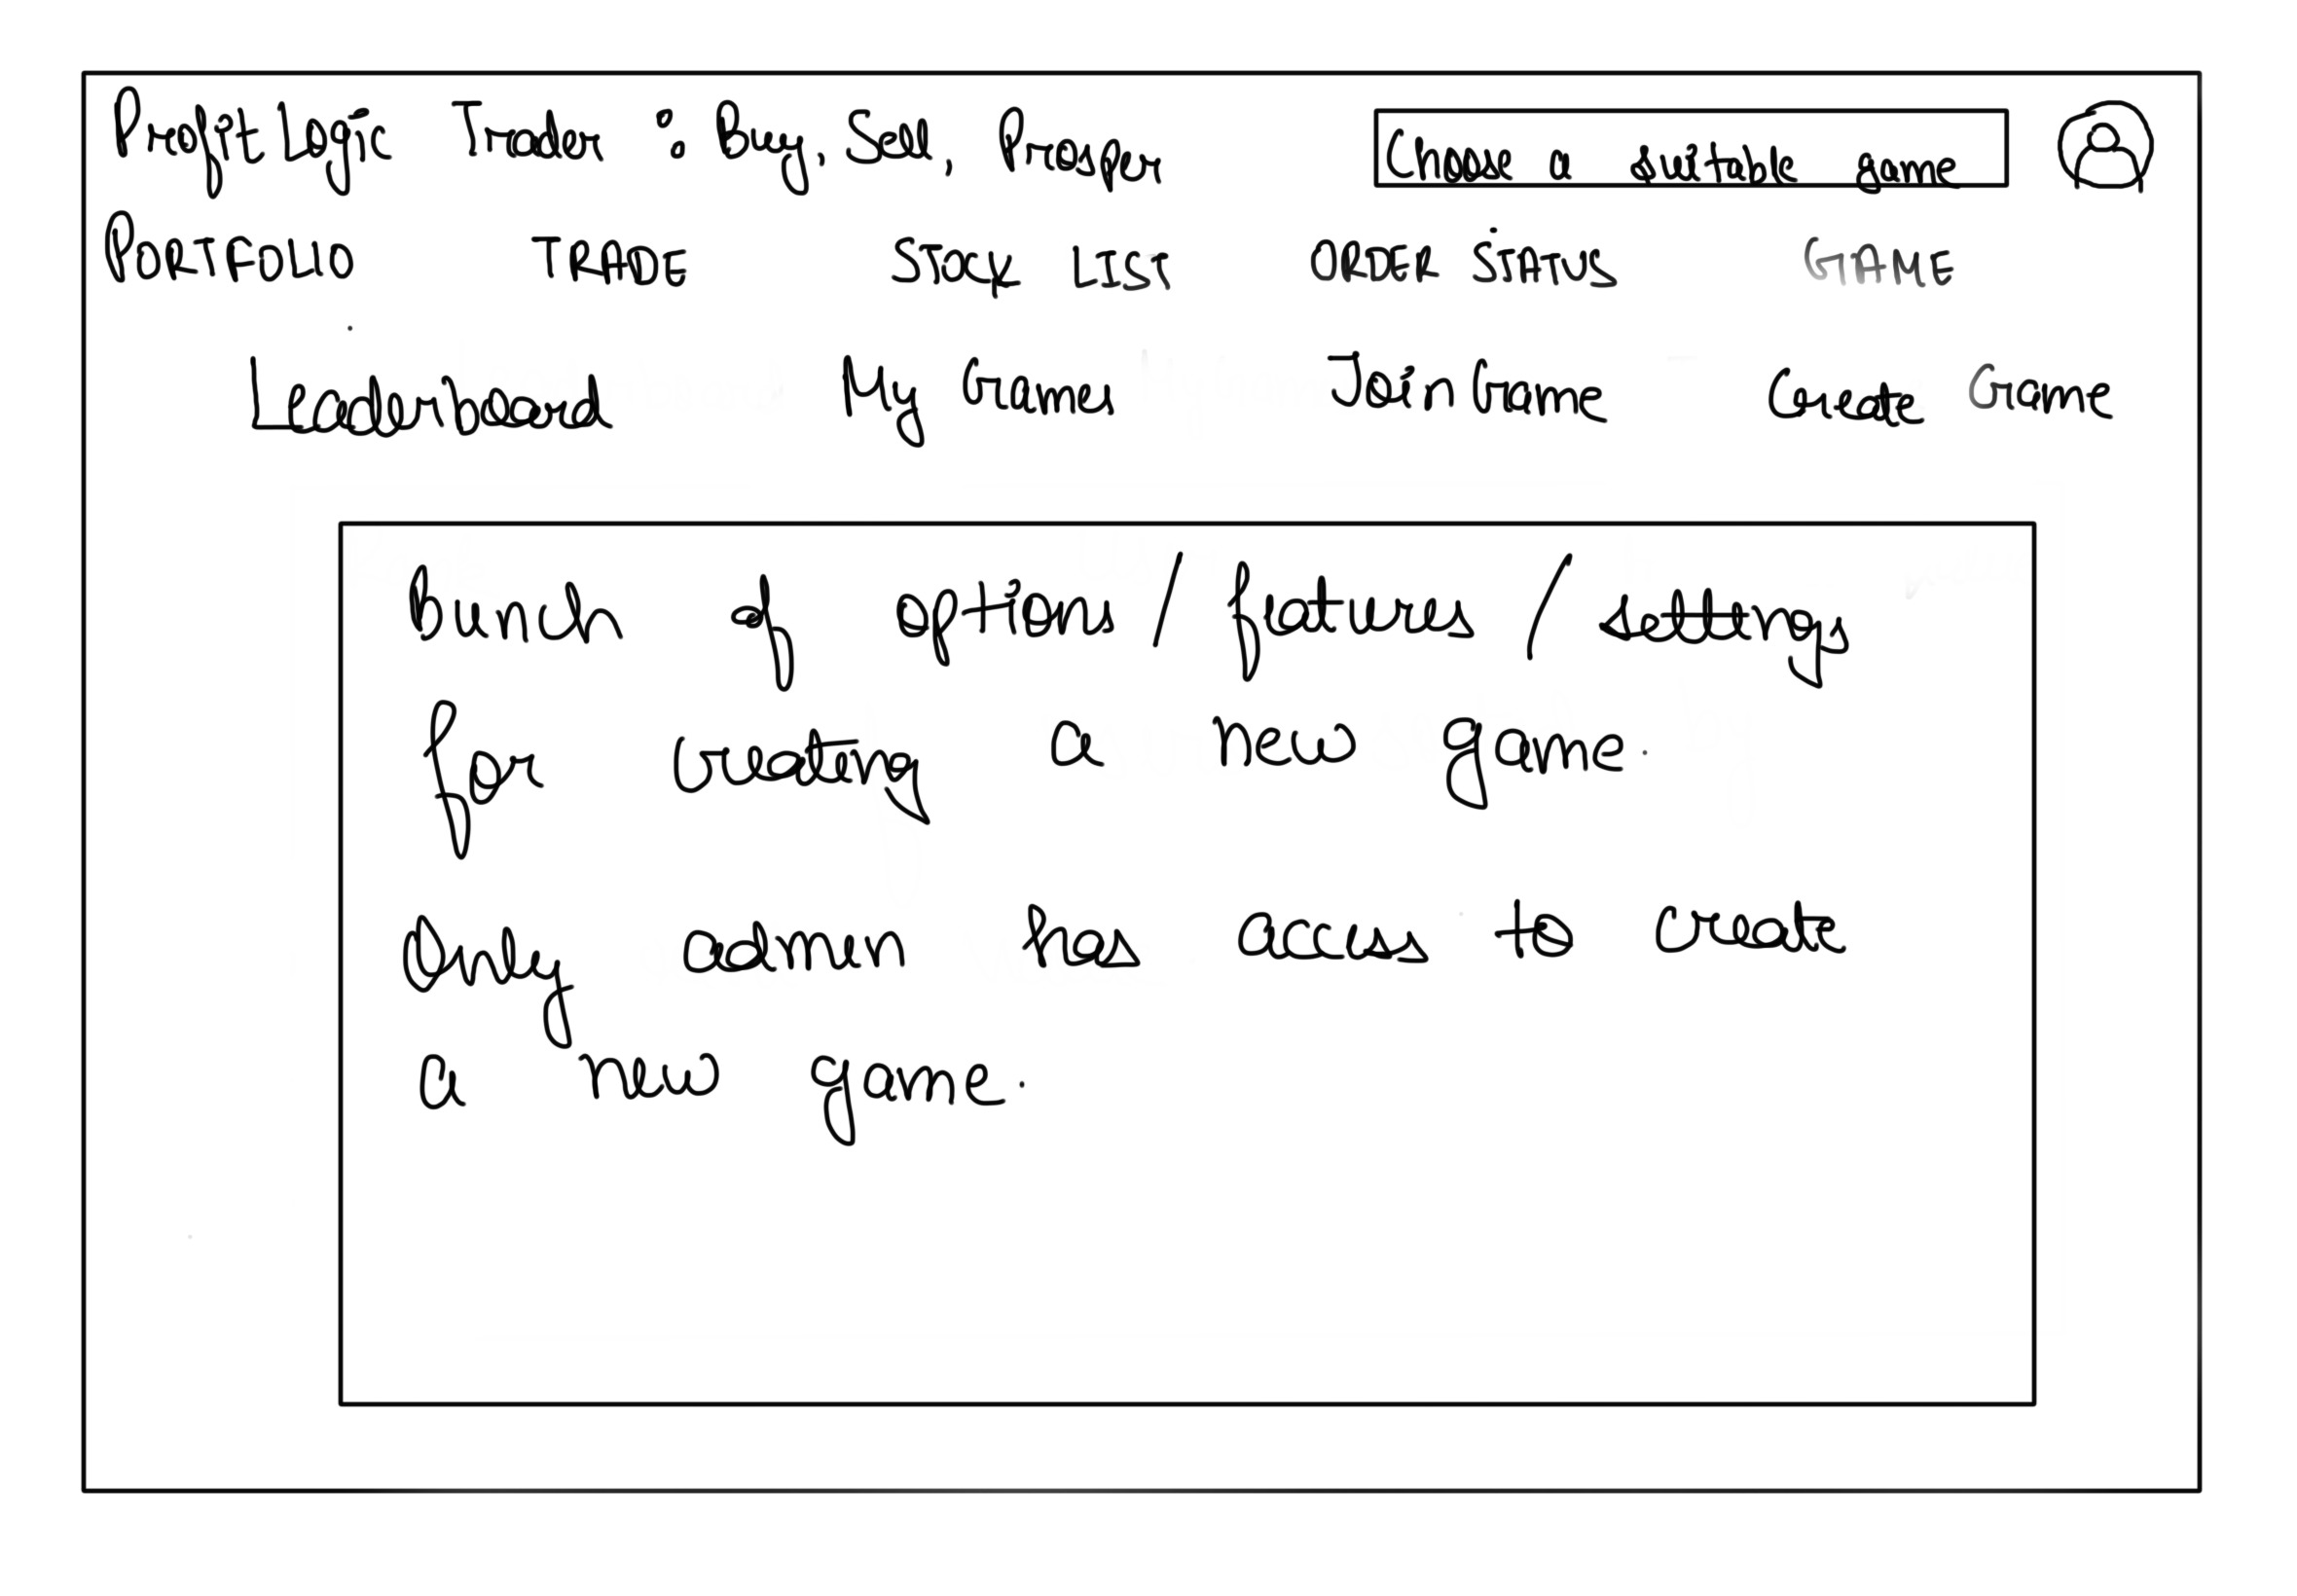 ProfitLogic Trader : Buy, Sell, Prosper
Choose a suitable game
PORTFOLIO TRADE STOCK LIST ORDER STATUS GAME
Leaderboard My Games Join Game Create Game
Bunch of options / features / settings
for creating a new game.
Only admin has access to create
a new game.